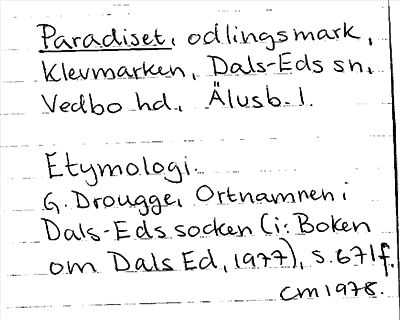 Paradiset, odlingsmark,
Klevmarken, Dals-Eds sn,
Vedbo hd., Älvsb. l.
Etymologi.
G. Drougge, Ortnamnen i
Dals-Eds socken (i: Boken
om Dals Ed, 1977), s. 671f.
CM 1978.